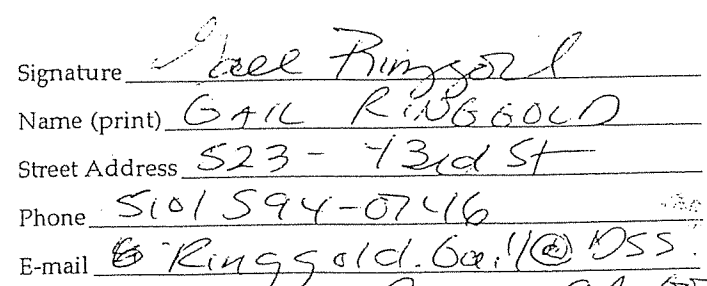 Signature Gail Ringgold
Name (print) GAIL RINGGOLD
Street Address 523 - 43rd St
Phone 510/594-0746
E-mail Ringgold.Gail@DSS.